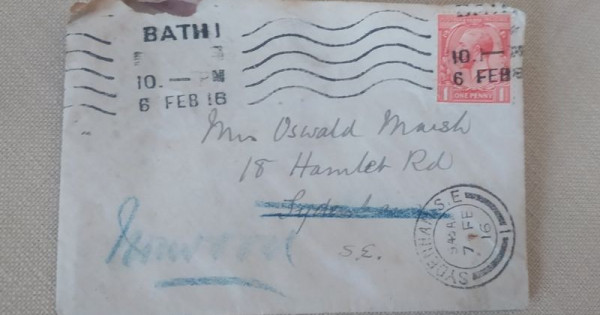 BATH
10. — PM
6 FEB 16
10.
6 FEB
ONE PENNY
Mrs Oswald Marsh
18 Hamlet Rd
Sydenham
S.E.
Norwood
SYDENHAM S.E.
7 FE
16